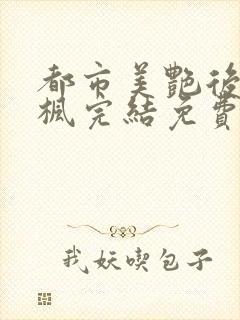 都市美艷後
楓完結免費
我妖喫包子